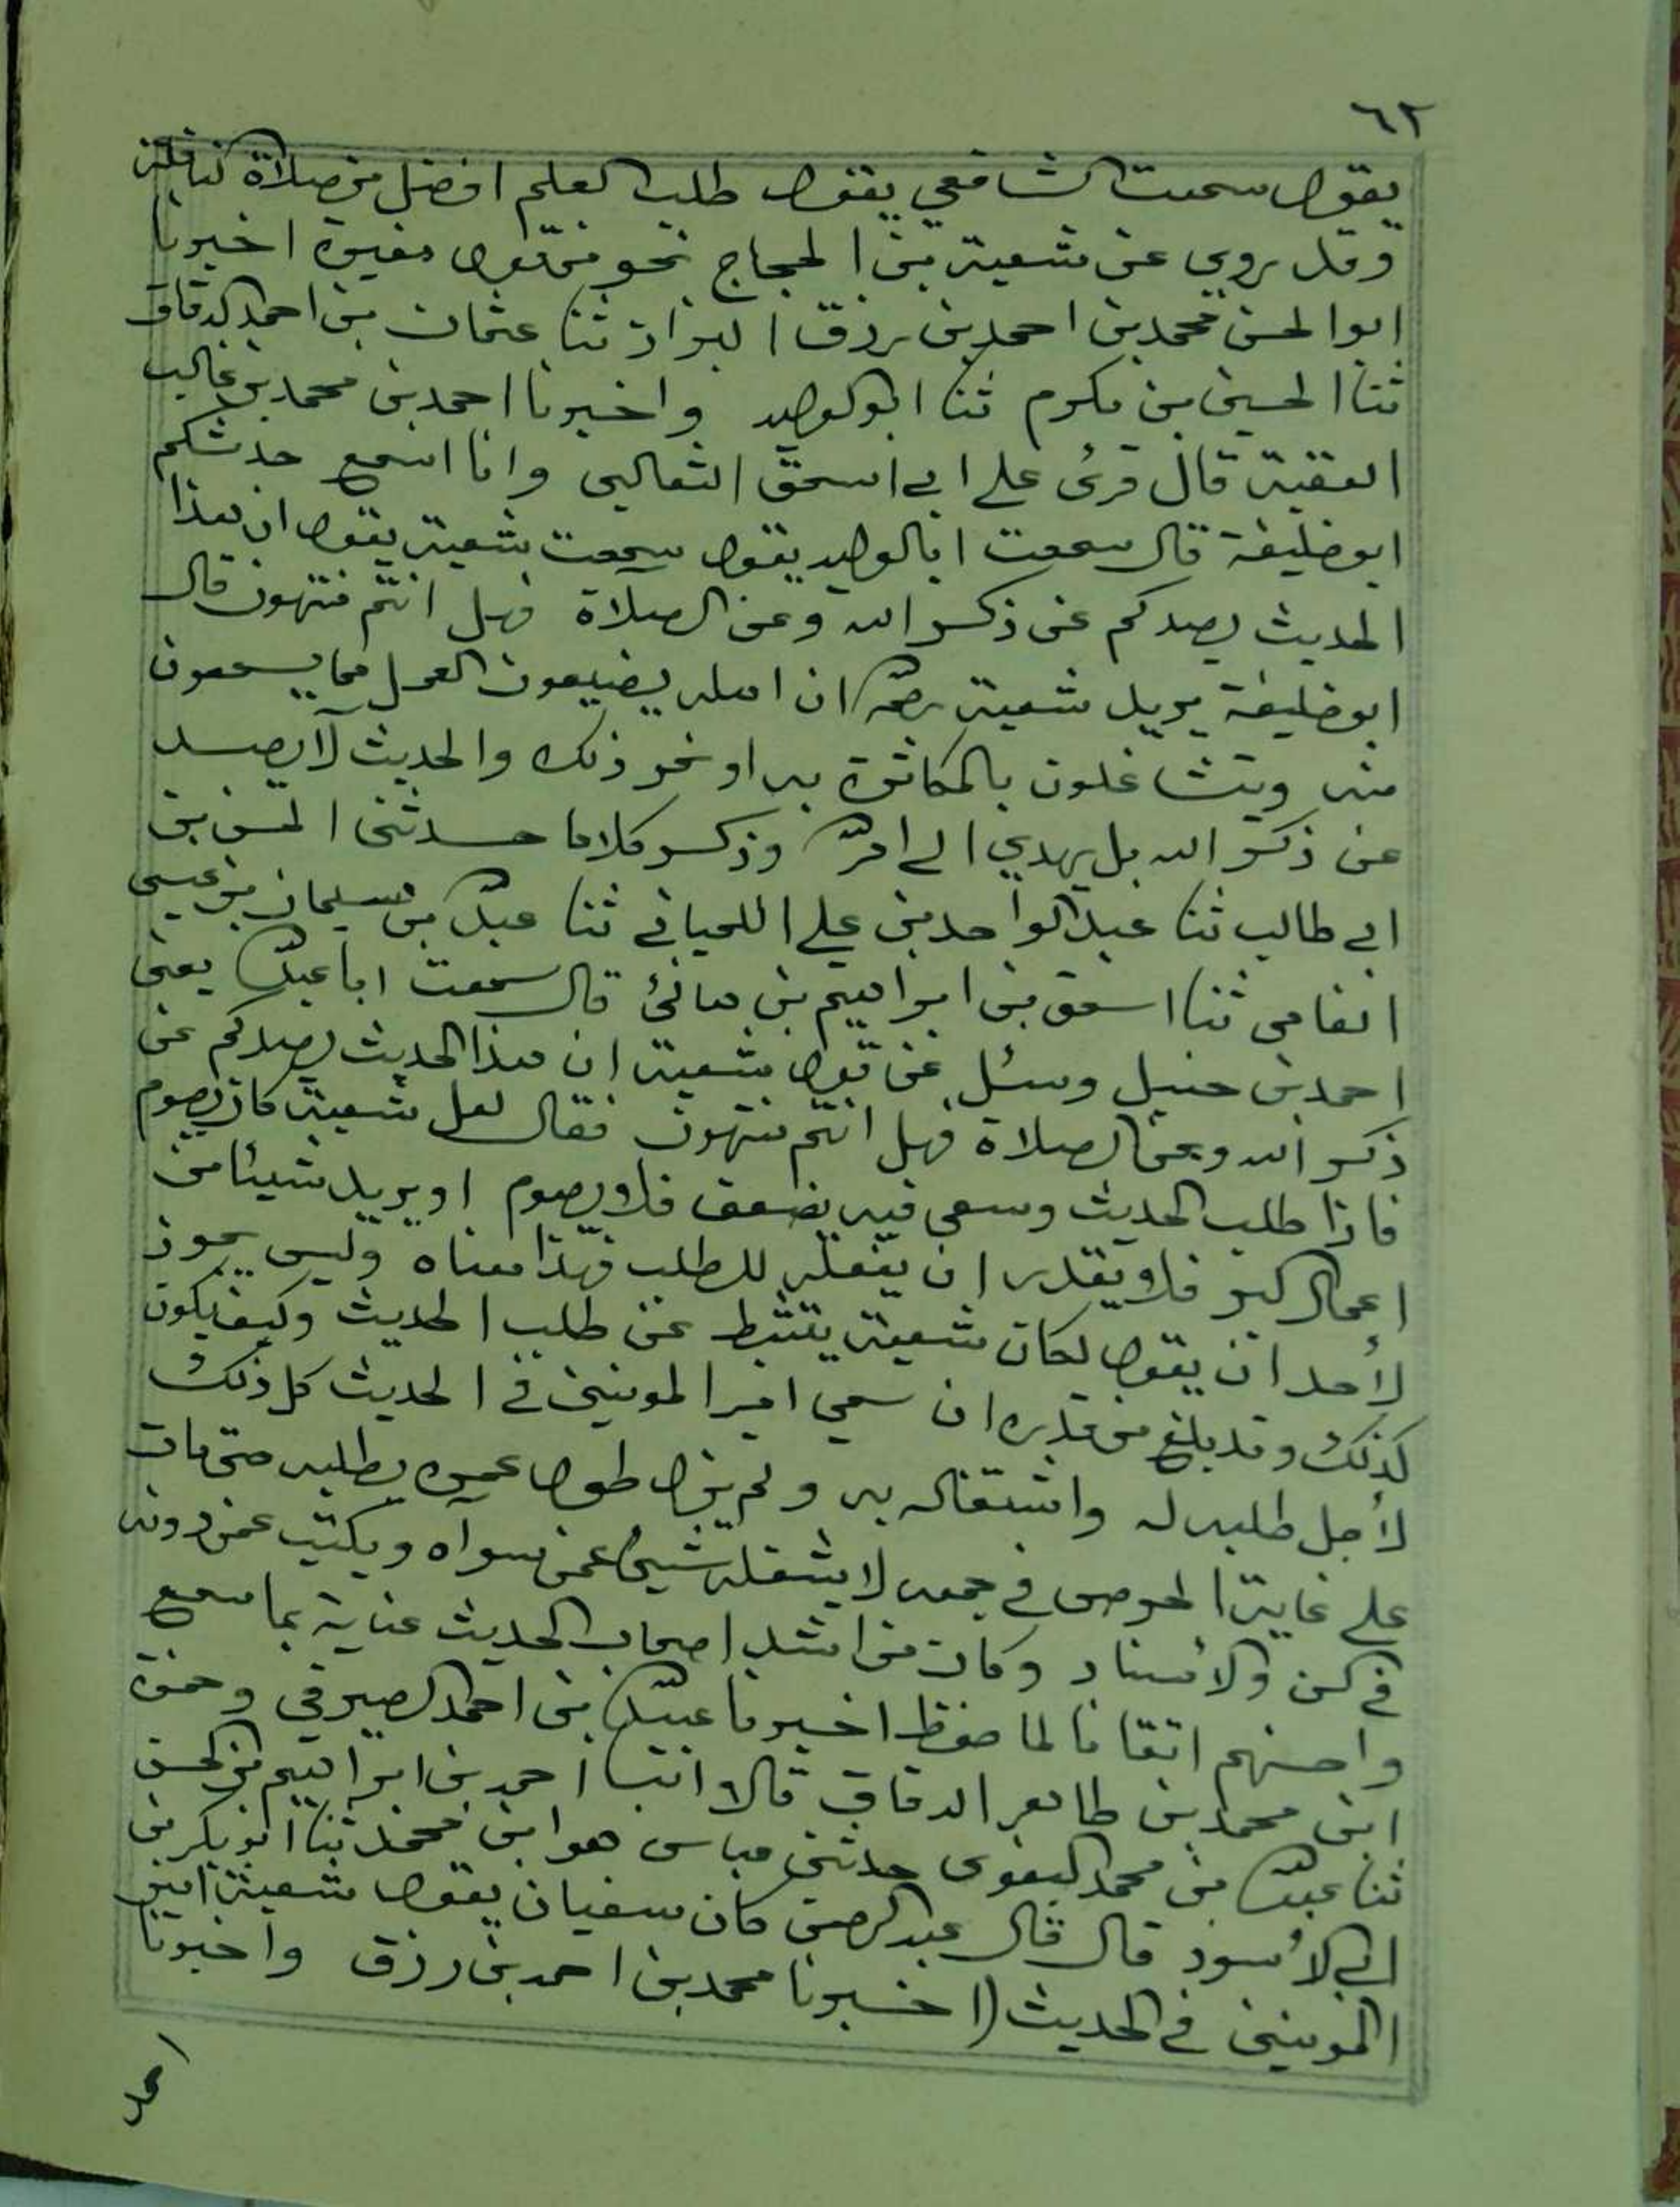 ٦٢
يقول سمعت الشافعي يقول طلب العلم افضل من صلاة النافلة
وقد روي عن شعبة بن الحجاج نحو من قول مغيرة اخبرنا
ابو الحسن محمد بن احمد بن رزق البزاز ثنا عثمان بن احمد الدقاق
ثنا الحسين بن مكرم ثنا ابو الوليد واخبرنا احمد بن محمد بن غالب
الفقيه قال قرئ على ابي اسحق الثعالبي وانا اسمع حدثكم
ابو خليفة قال سمعت ابا الوليد يقول سمعت شعبة يقول ان هذا
الحديث يصدكم عن ذكر الله وعن الصلاة فهل انتم منتهون قال
ابو خليفة يريد شعبة ان اهله يضيعون العمل مما يسمعون
منه ويتشاغلون بالمكاثرة به او نحو ذلك والحديث لا يصد
عن ذكر الله بل يهدي الى امر وذكر كلاما حدثني الحسن بن
ابي طالب ثنا عبد الواحد بن علي اللحياني ثنا عبد الله بن سليمان بن عيسى
الفامي ثنا اسحق بن ابراهيم بن هانئ قال سمعت ابا عبد الله يعني
احمد بن حنبل وسئل عن قول شعبة ان هذا الحديث يصدكم عن
ذكر الله وعن الصلاة فهل انتم منتهون فقال لعل شعبة كان يصوم
فاذا طلب الحديث وسعى فيه يضعف فلا يصوم او يريد شيئا من
اعمال البر فلا يقدر ان يفعله للطلب فهذا معناه وليس يجوز
لأحد ان يقول لكان شعبة يثبط عن طلب الحديث وكيف يكون
كذلك وقد بلغ من قدره ان سمي امير المومنين في الحديث كل ذلك
لأجل طلبه له واشتغاله به ولم يزل طول عمره يطلبه حتى مات
على غاية الحرص في جمعه لا يشغله شيئ عمن سواه ويكتب عمن دونه
في السن والأسناد وكان من اشد اصحاب الحديث عناية بما سمع
واحسنهم اتقانا لما حفظ اخبرنا عبيد الله بن احمد الصيرفي وحمزة
ابن محمد بن طاهر الدقاق قالا انبا احمد بن ابراهيم بن الحسن
ثنا عبد الله بن محمد البغوي حدثني عباس هو ابن محمد ثنا ابو بكر بن
ابي الأسود قال قال عبد الرحمن كان سفيان يقول شعبة امير
المومنين في الحديث (اخبرنا محمد بن احمد بن رزق واخبرنا
احمد